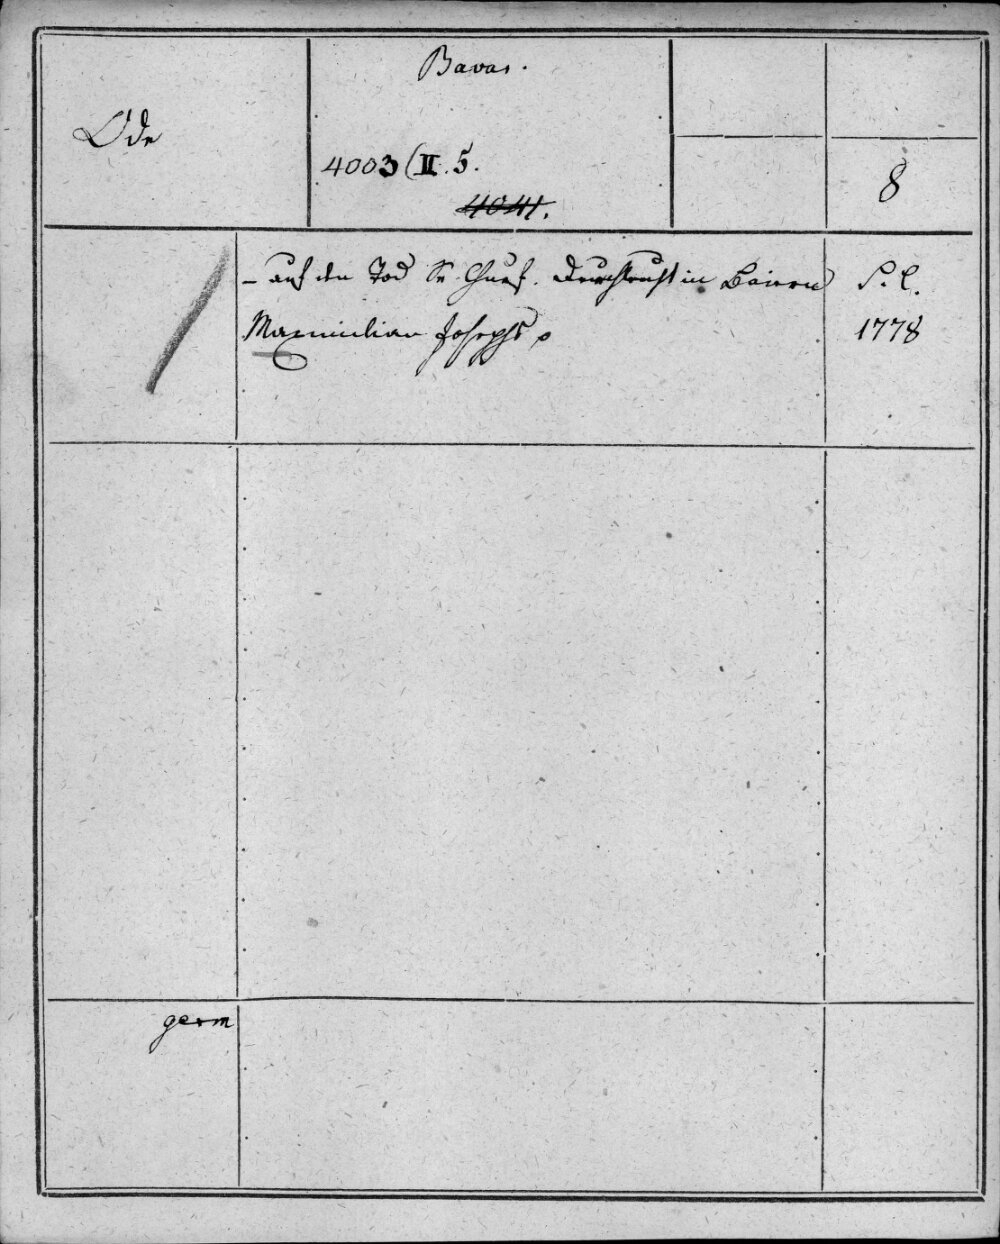 Bavar.
Ode
4003 (II. 5.
4041.
8
- auf den Tod Sr. Churf. Durchlaucht in Baiern
S. l.
Maximilian Josephs
1778
germ